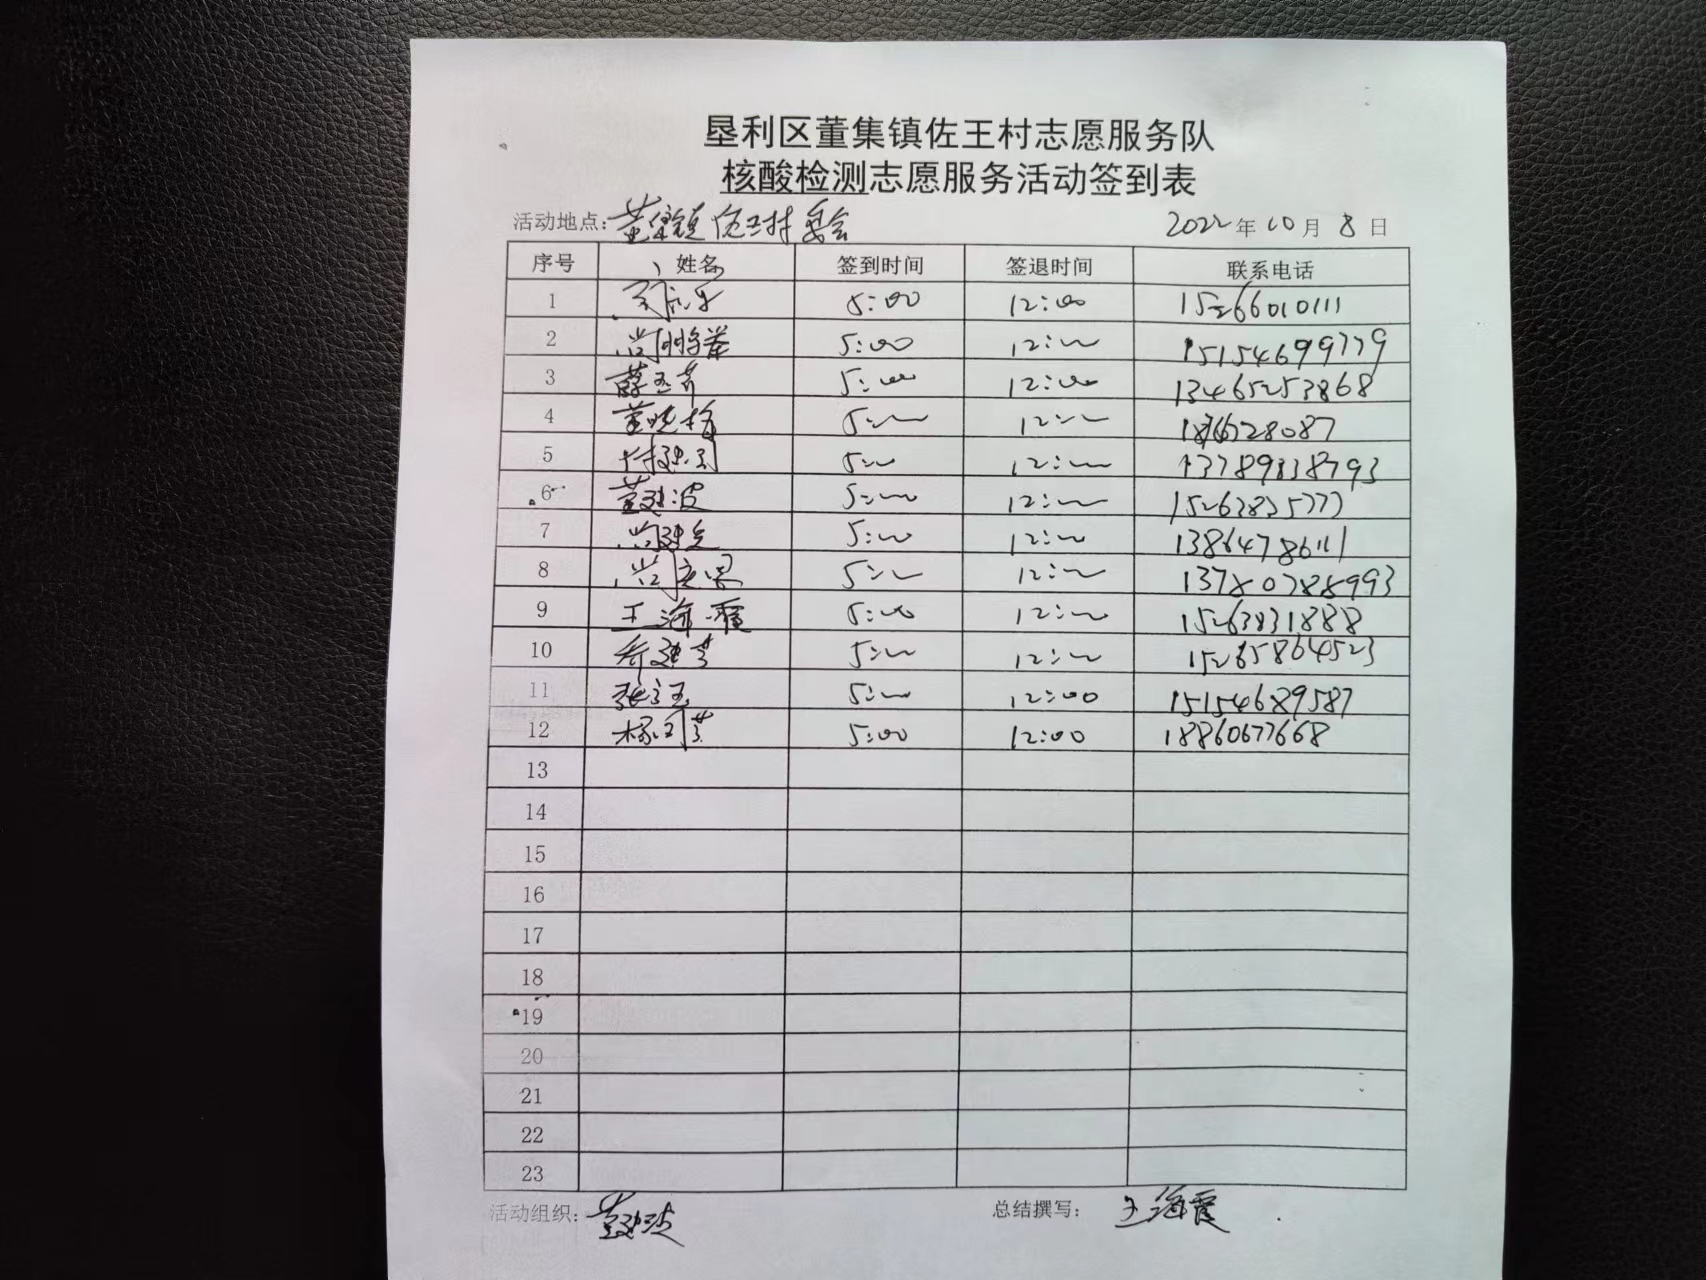 垦利区董集镇佐王村志愿服务队
核酸检测志愿服务活动签到表
活动地点：董集镇佐王村委会 2022年10月8日
序号 姓名 签到时间 签退时间 联系电话
1 5:00 12:00 15266010111
2 尚明峰 5:00 12:00 15154699779
3 薛玉芹 5:00 12:00 13465253868
4 董晓梅 5:00 12:00
5 5:00 12:00 13789838793
6 董建波 5:00 12:00 15263835777
7 尚建 5:00 12:00 13864786111
8 尚 5:00 12:00 13780788993
9 王海霞 5:00 12:00 15263831888
10 乔建芳 5:00 12:00 15265864523
11 张玉 5:00 12:00 15154689587
12 杨同芳 5:00 12:00 18860677668
13
14
15
16
17
18
19
20
21
22
23
活动组织：董建波 总结撰写：王海霞